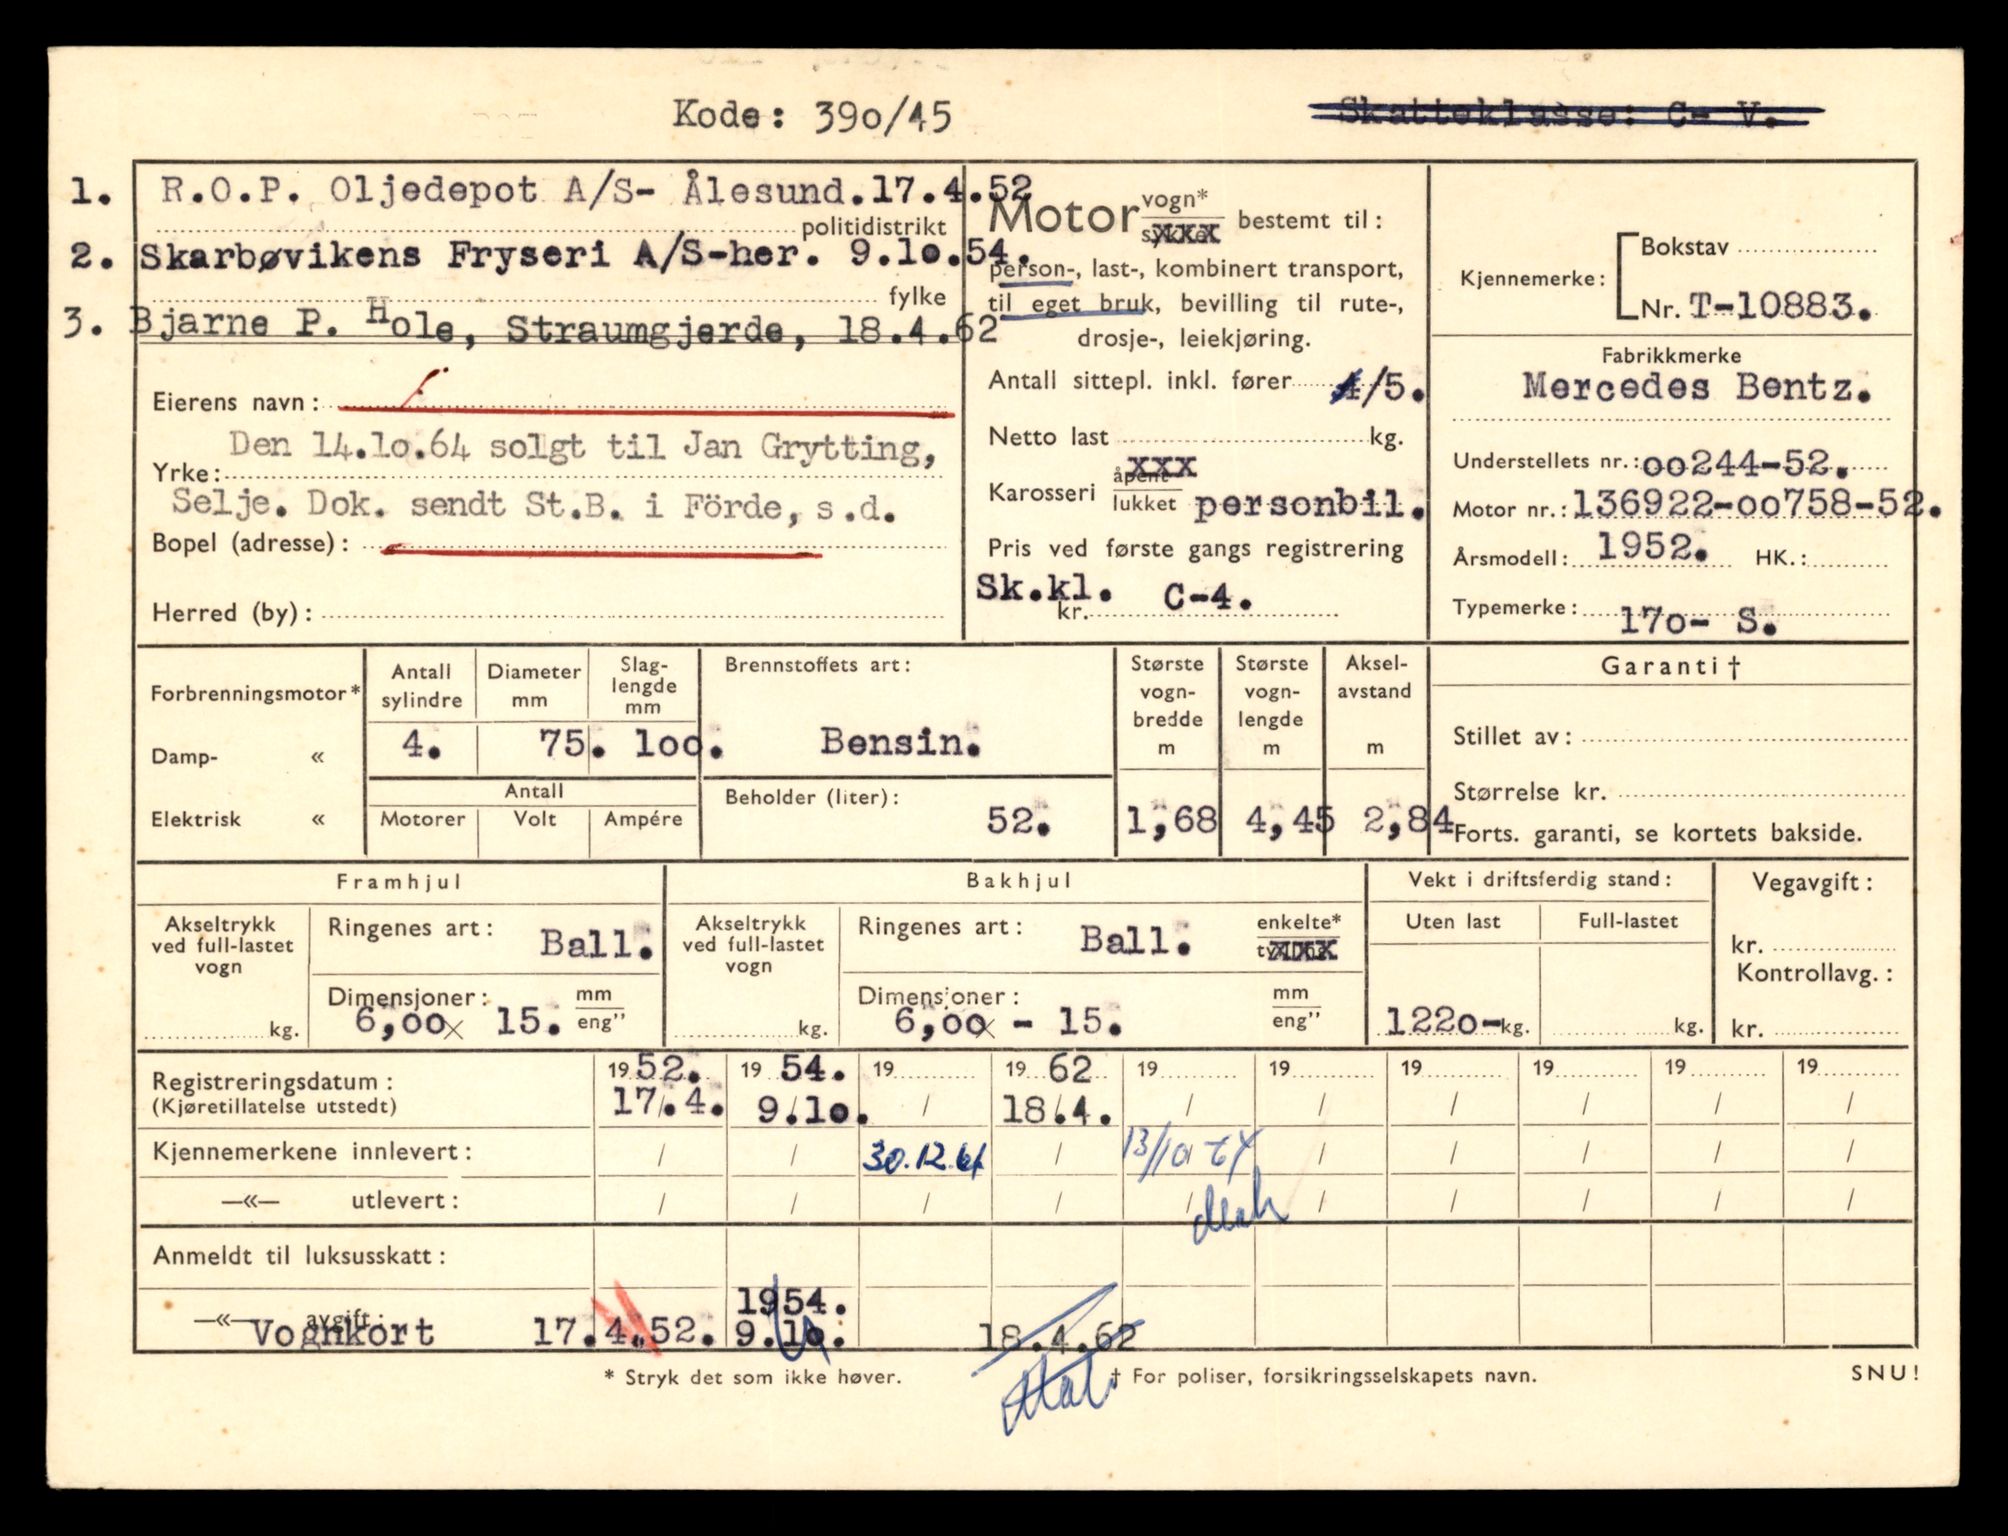 Kode: 39o/45
Skatteklasse: C- V.
1. R.O.P. Oljedepot A/S- Ålesund.17.4.52
politidistrikt
2. Skarbøvikens Fryseri A/S-her. 9.1o.54.
fylke
3. Bjarne P. Hole, Straumgjerde, 18.4.62
Eierens navn:
Den 14.1o.64 solgt til Jan Grytting,
Yrke:
Selje. Dok. sendt St.B. i Förde, s.d.
Bopel (adresse):
Herred (by):
Motor vogn*
xxx bestemt til:
person-, last-, kombinert transport,
til eget bruk, bevilling til rute-,
drosje-, leiekjøring.
Antall sittepl. inkl. fører 4/5.
Netto last kg.
Karosseri åpent xxx
lukket personbil.
Pris ved første gangs registrering
Sk.kl. C-4.
kr.
Kjennemerke: Bokstav
Nr. T-10883.
Fabrikkmerke
Mercedes Bentz.
Understellets nr.: oo244-52.
Motor nr.: 136922-oo758-52.
Årsmodell: 1952. HK.:
Typemerke: 17o- S.
Forbrenningsmotor*
Damp- «
Elektrisk «
Antall sylindre
4.
Diameter mm
75.
Slag-
lengde
mm
1oo.
Antall
Motorer Volt Ampére
Brennstoffets art:
Bensin.
Beholder (liter):
52.
Største
vogn-
bredde
m
1,68
Største
vogn-
lengde
m
4,45
Aksel-
avstand
m
2,84
Garanti †
Stillet av:
Størrelse kr.
Forts. garanti, se kortets bakside.
Framhjul
Akseltrykk
ved full-lastet
vogn
kg.
Ringenes art: Ball.
Dimensjoner: mm
6,oo x 15. eng"
Bakhjul
Akseltrykk
ved full-lastet
vogn
kg.
Ringenes art: Ball. enkelte*
xxx
Dimensjoner: mm
6,oo x - 15. eng"
Vekt i driftsferdig stand:
Uten last Full-lastet
122o- kg. kg.
Vegavgift:
kr.
Kontrollavg.:
kr.
Registreringsdatum: 19 52. 19 54. 19 19 62 19 19 19 19 19 19
(Kjøretillatelse utstedt) 17.4. 9.1o. / 18.4. / / / / / /
Kjennemerkene innlevert: / / 30.12.61 / 13/10 64 / / / / /
—«— utlevert: / / / / / / / / / /
Anmeldt til luksusskatt:
—«— avgift: 1954.
Vognkort 17.4.52. 9.1o. 18.4.62
* Stryk det som ikke høver. † For poliser, forsikringsselskapets navn. SNU!